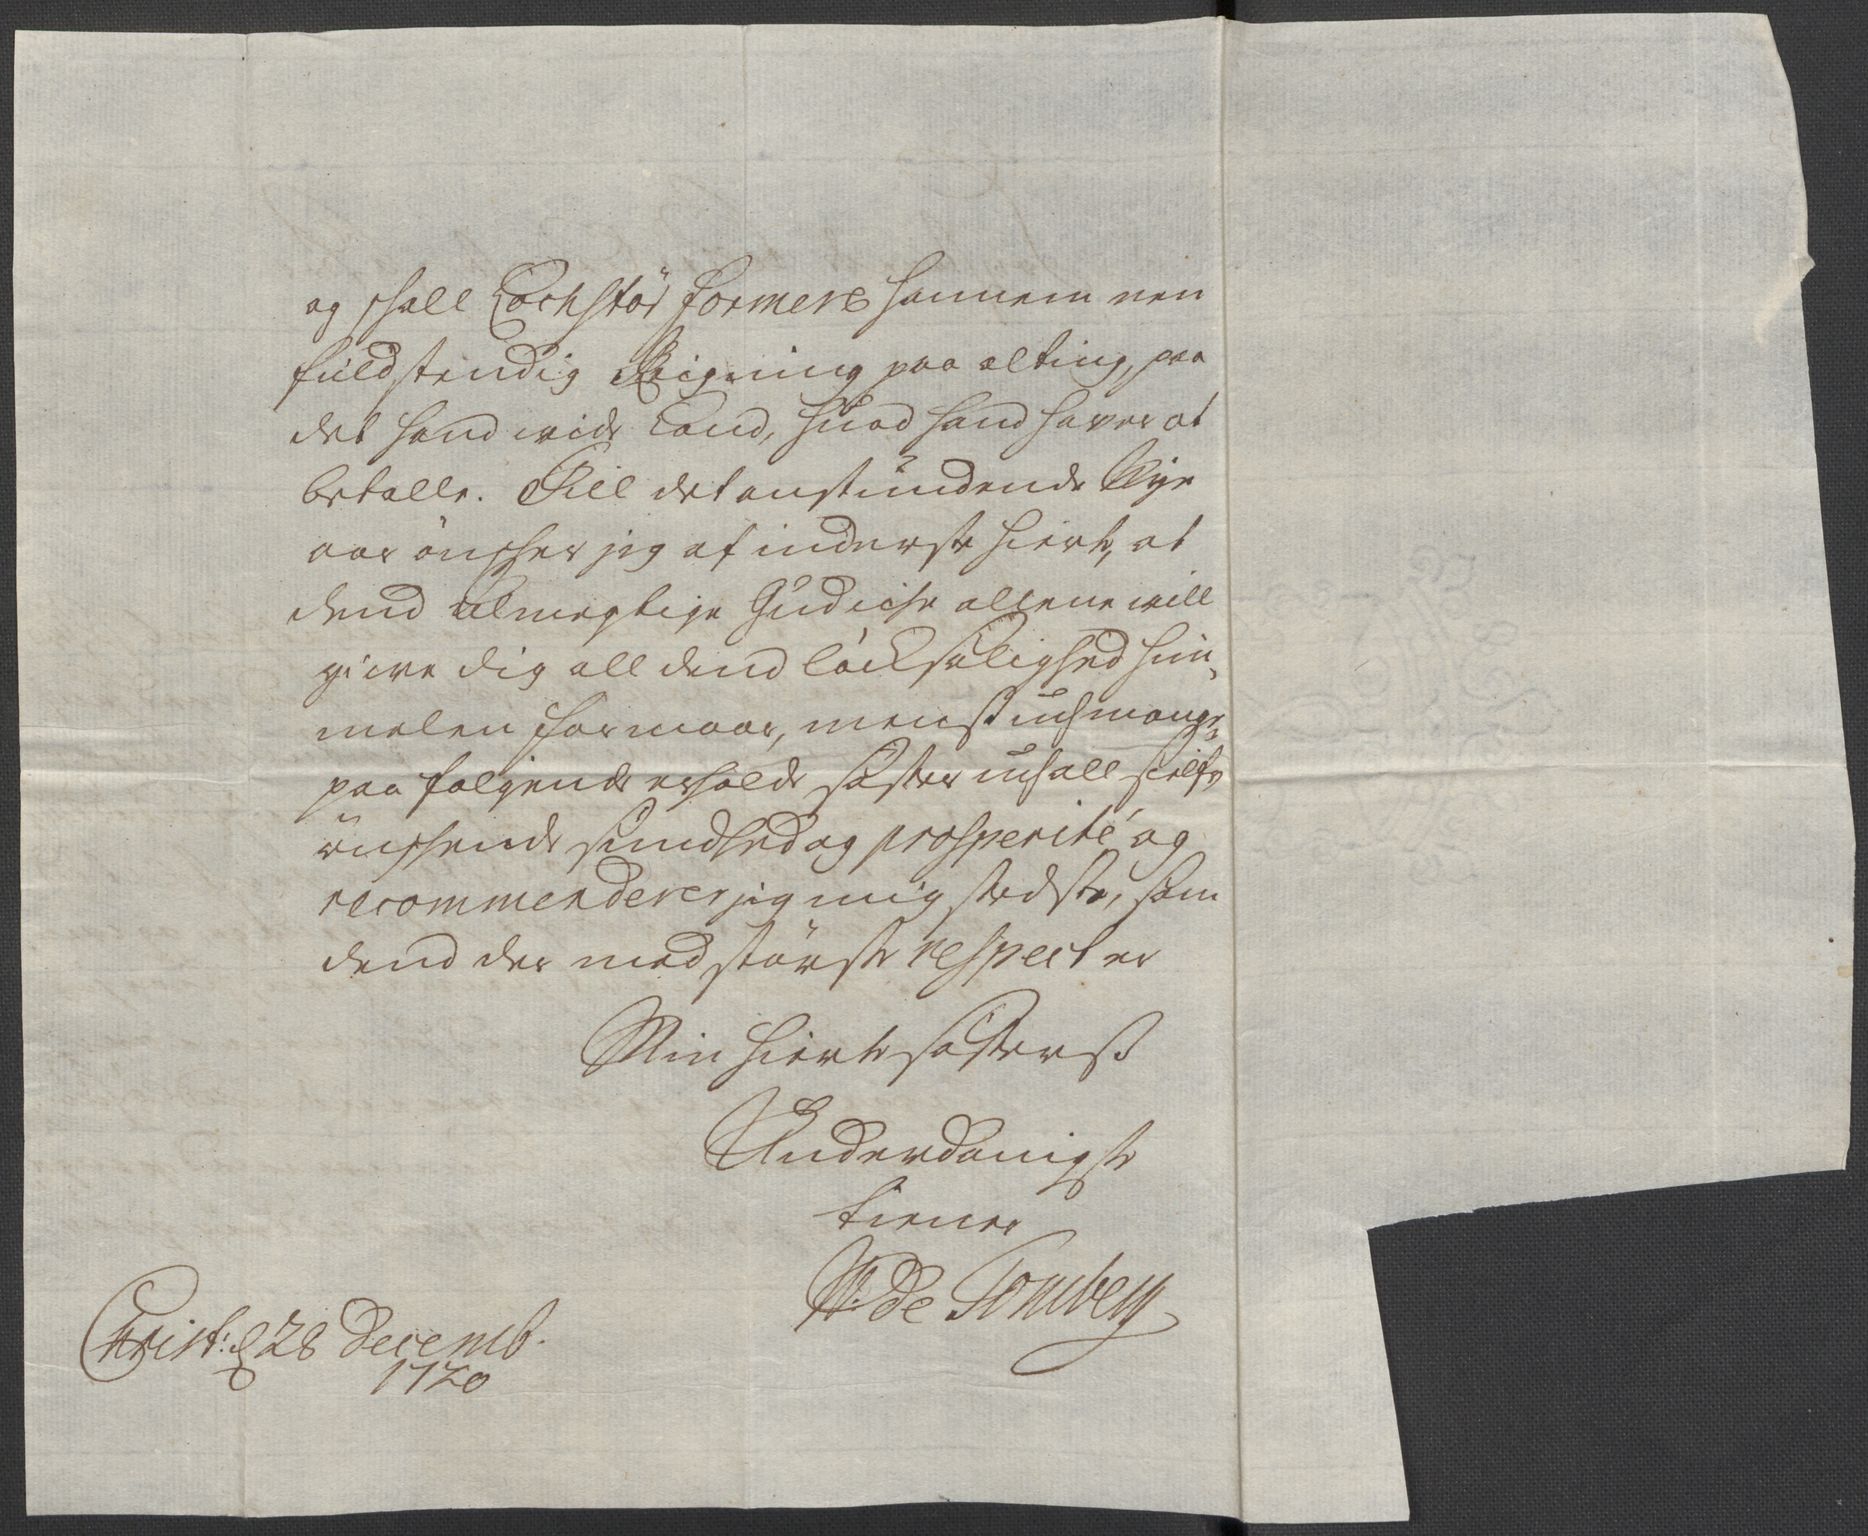 og skall Lochstör formere hannem een
fuldstendig Reigning paa alting, paa
det hand wide kand, huad hand haver at
betalle. Till det anstundende Nye
aar önscher jeg af inderste hierte, at
dend Almegtige Gud iche allene will
give dig all dend löcksalighed him¬
melen formaar, mens end mange
paa fölgende erholde söster u
önschende sundhed og prosperité og
recommenderer jeg mig stedste, som
dend der med störste respect er
Min hierte sösterß
Underdanigste
tiener
W: de Tonsberg
Christ: d 28 Decemb.
1720